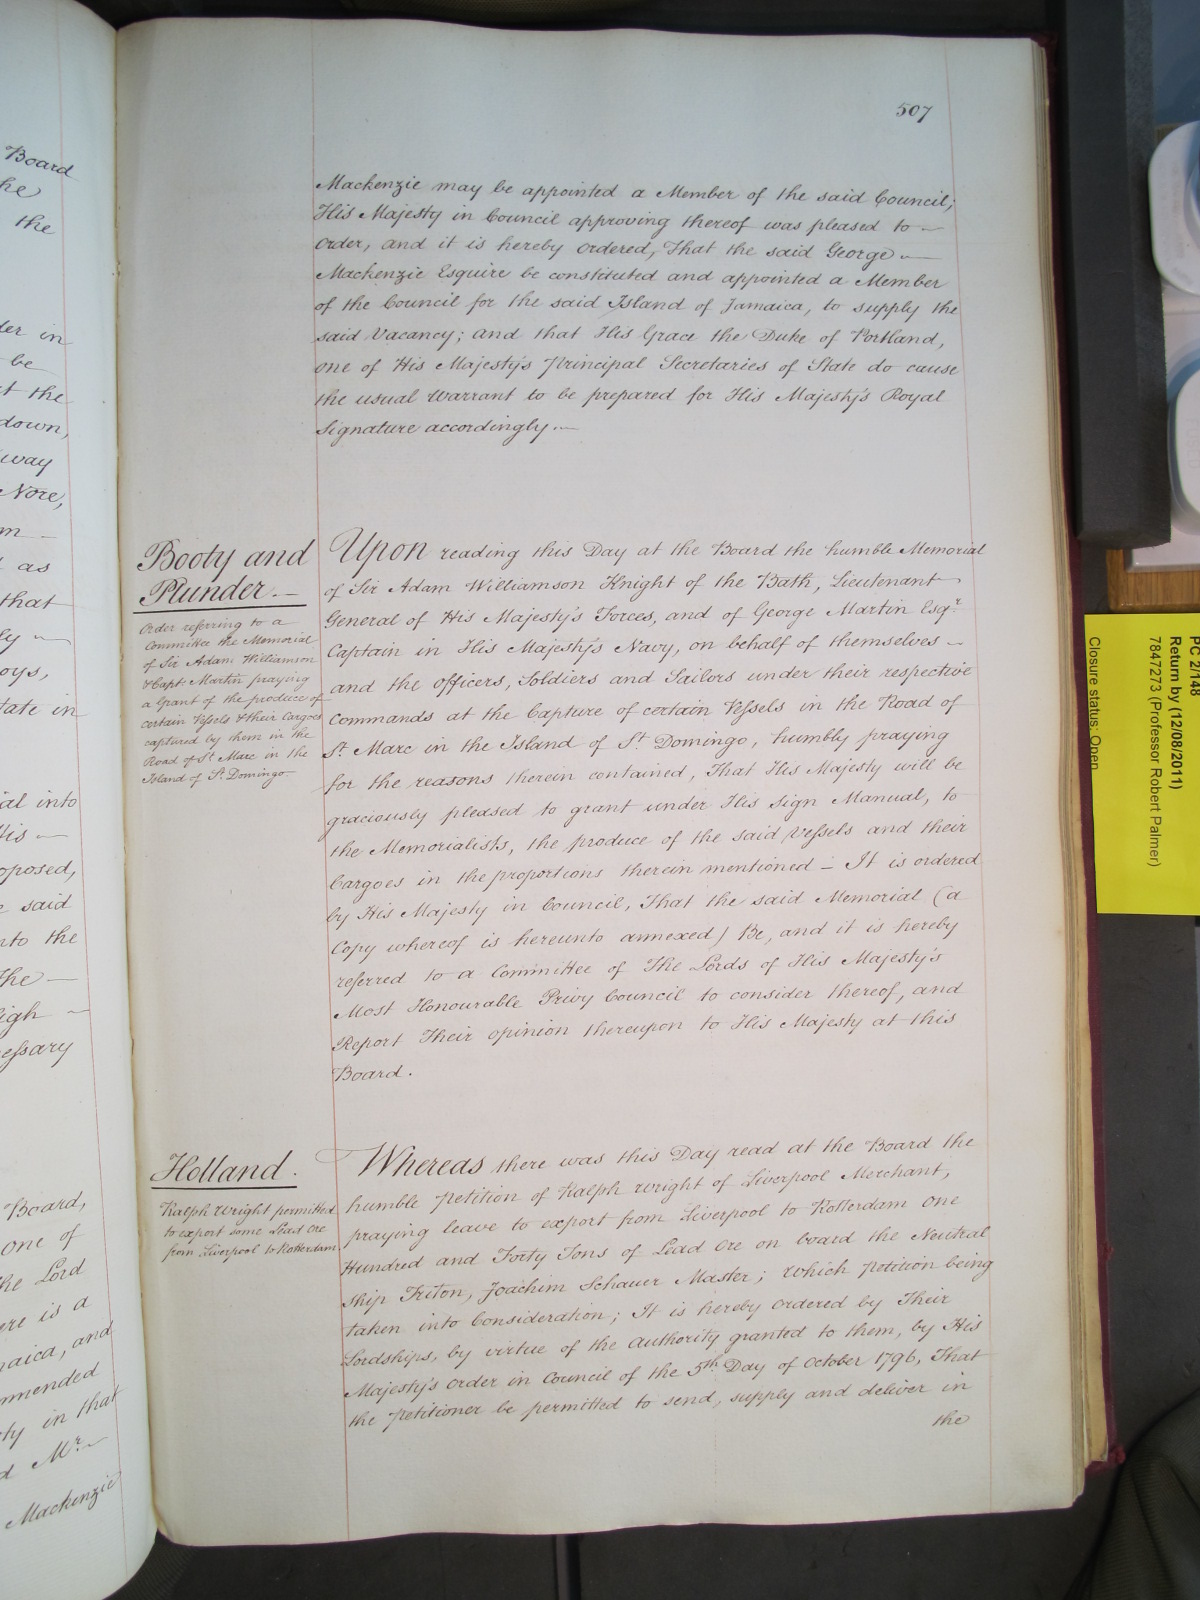 Board
he
the
der in
be
t the
down,
way
Nore,
m —
as
that
ly —
oys,
tate in
ial into
His —
oposed,
e said
nto the
The —
igh —
cessary
Board,
one of
he Lord
ere is a
maica, and
mmended
ty in that
d Mr. —
Mackenzie
507
Mackenzie may be appointed a Member of the said Council;
His Majesty in Council approving thereof was pleased to —
order, and it is hereby ordered, That the said George —
Mackenzie Esquire be constituted and appointed a Member
of the Council for the said Island of Jamaica, to supply the
said Vacancy; and that His Grace the Duke of Portland,
one of His Majesty's Principal Secretaries of State do cause
the usual Warrant to be prepared for His Majesty's Royal
Signature accordingly. —
Booty and
Plunder. —
Order referring to a
Committee the Memorial
of Sir Adam Williamson
& Capt. Martin praying
a Grant of the produce of
certain Vessels & their Cargoes
captured by them in the
Road of St Marc in the
Island of St. Domingo
Upon reading this Day at the Board the humble Memorial
of Sir Adam Williamson Knight of the Bath, Lieutenant
General of His Majesty's Forces, and of George Martin Esqr.
Captain in His Majesty's Navy, on behalf of themselves —
and the officers, Soldiers and Sailors under their respective
Commands at the Capture of certain Vessels in the Road of
St. Marc in the Island of St. Domingo, humbly praying
for the reasons therein contained, That His Majesty will be
graciously pleased to grant under His Sign Manual, to
the Memorialists, the produce of the said Vessels and their
Cargoes in the proportions therein mentioned — It is ordered
by His Majesty in Council, That the said Memorial (a
Copy whereof is hereunto annexed) Be, and it is hereby
referred to a Committee of The Lords of His Majesty's
Most Honourable Privy Council to consider thereof, and
Report Their opinion thereupon to His Majesty at this
Board.
Holland.
Ralph Wright permitted
to export some Lead Ore
from Liverpool to Rotterdam.
Whereas there was this Day read at the Board the
humble Petition of Ralph Wright of Liverpool Merchant,
praying leave to export from Liverpool to Rotterdam One
Hundred and Forty Tons of Lead Ore on board the Neutral
Ship Triton, Joachim Schauer Master; Which Petition being
taken into Consideration; It is hereby ordered by Their
Lordships, by virtue of the Authority granted to them, by His
Majesty's Order in Council of the 5th Day of October 1796, That
the Petitioner be permitted to send, supply and deliver in
the
PC 2/148
Return by (12/08/2011)
7847273 (Professor Robert Palmer)
Closure status: Open